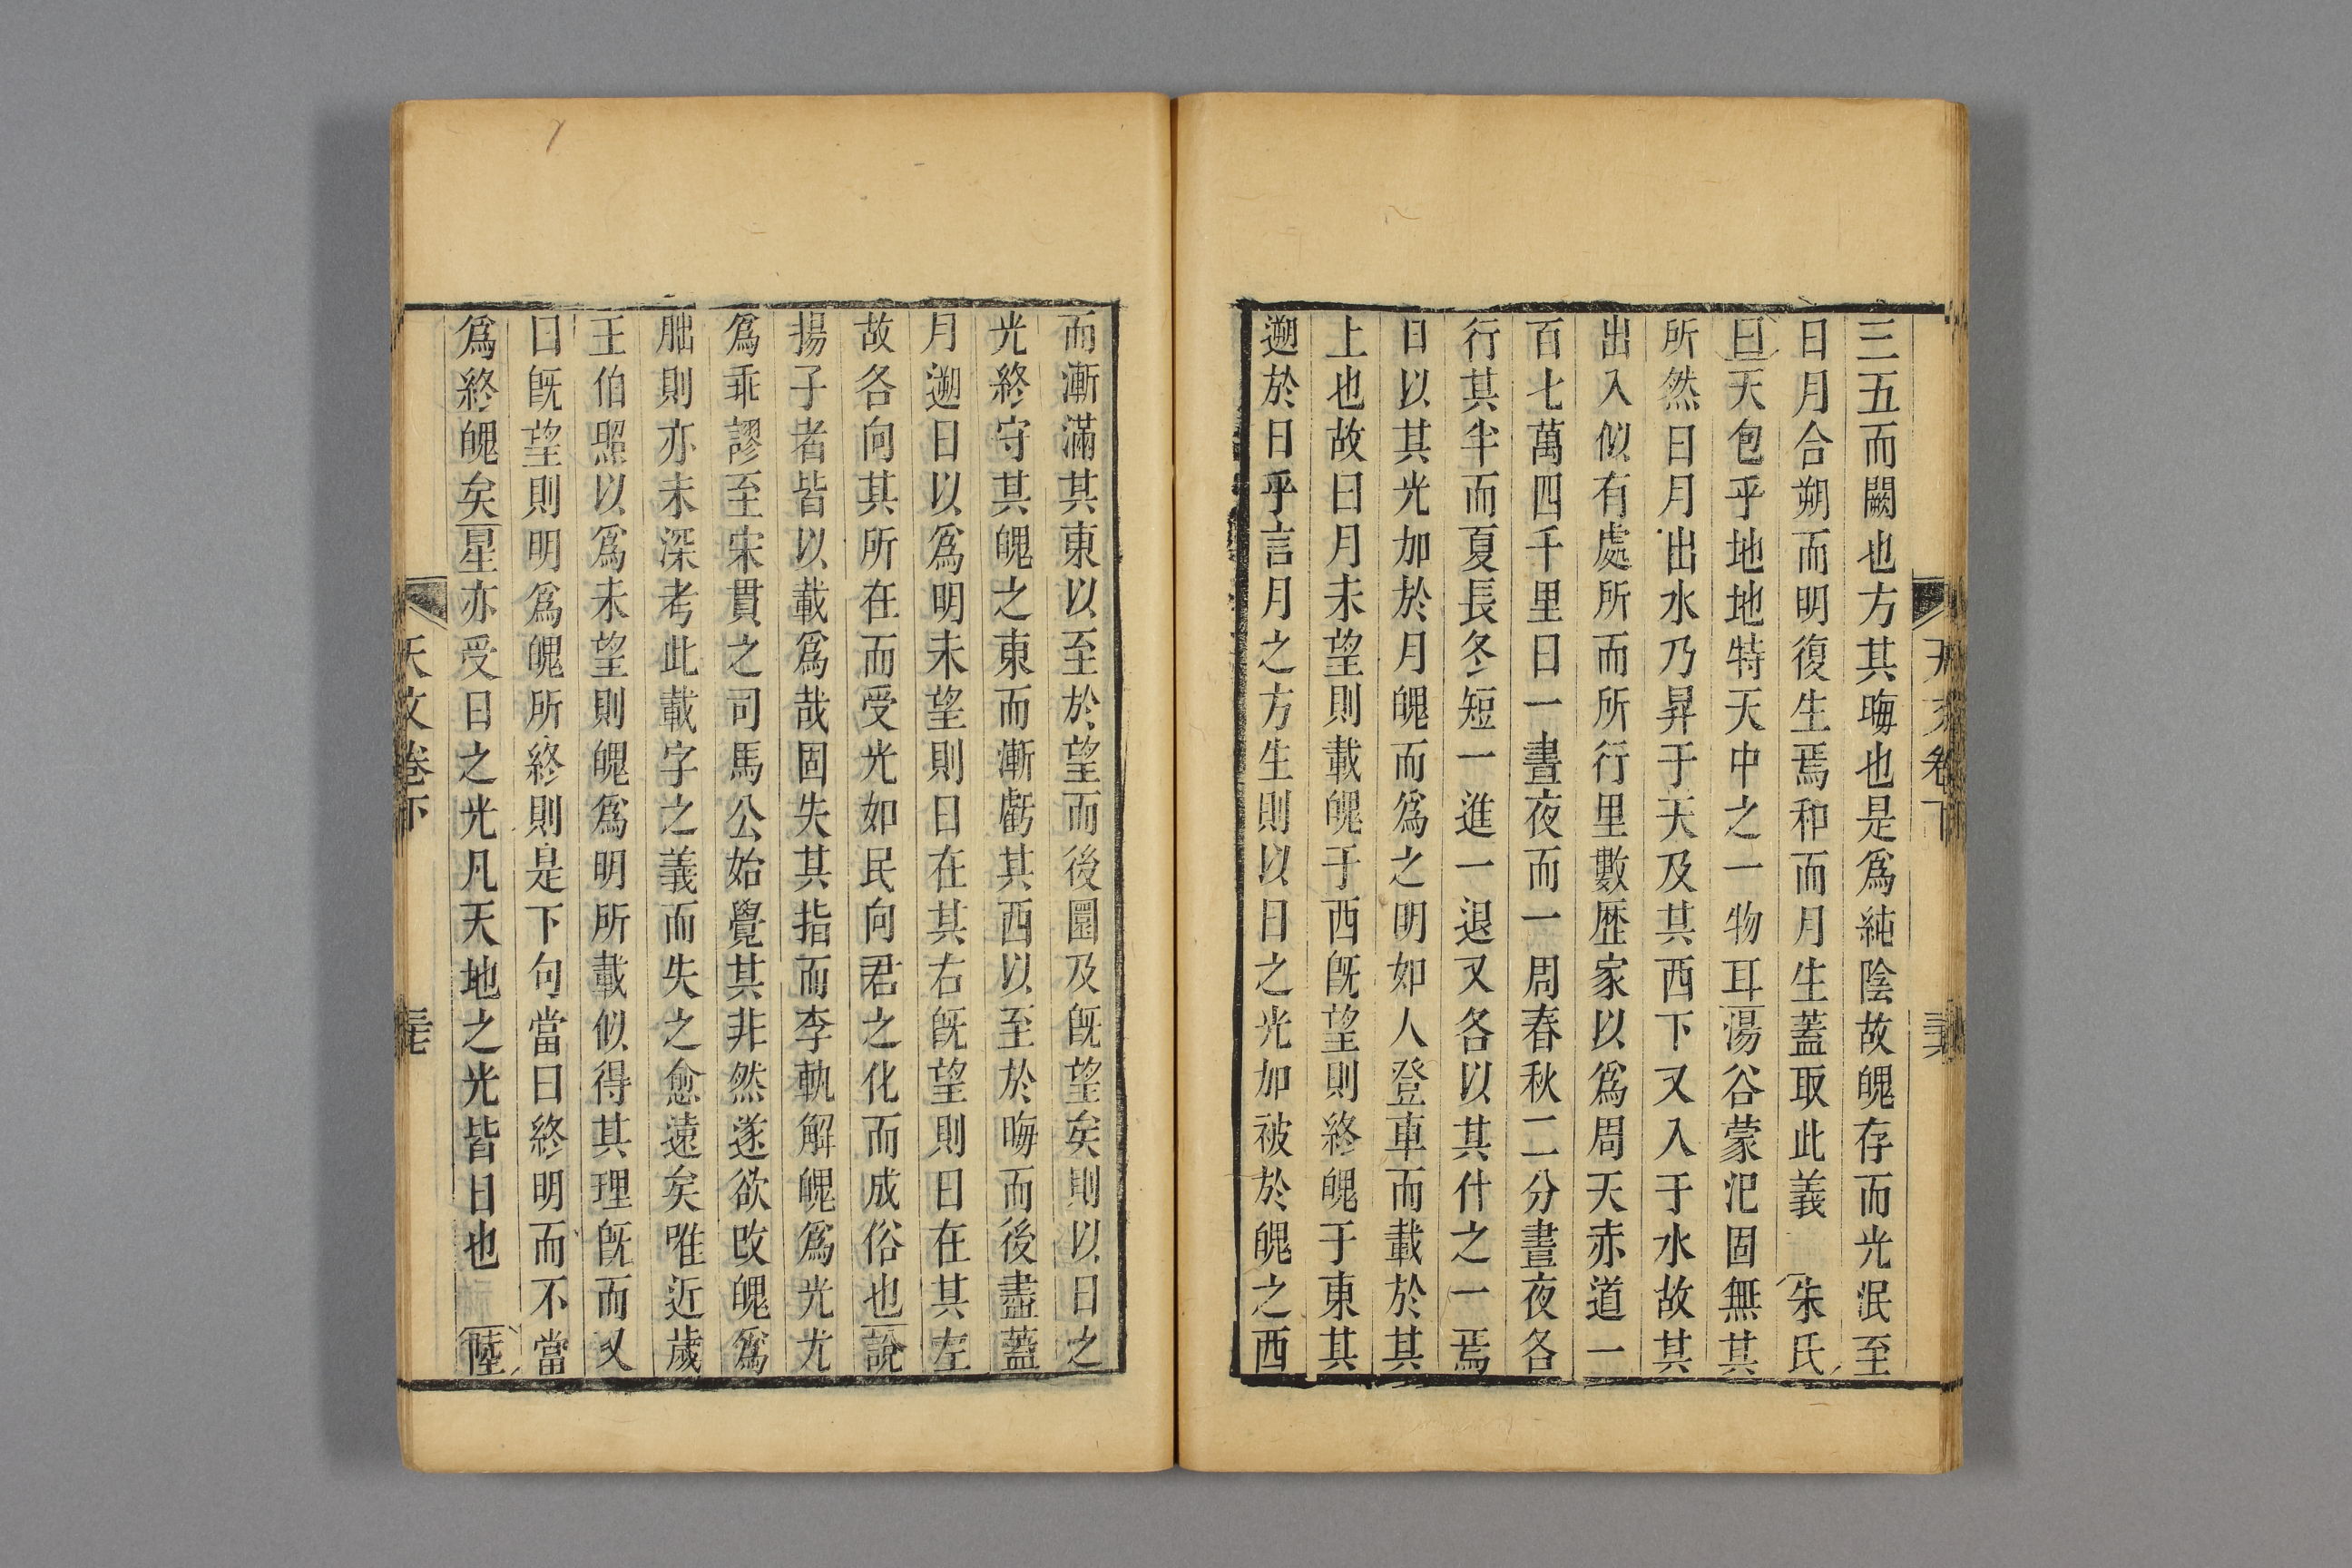 三五而闕也方其晦也是爲純陰故魄存而光泯至
日月合朔而明復生焉和而月生蓋取此義　朱氏
曰天包乎地地特天中之一物耳湯谷蒙汜固無其
所然日月出水乃昇于天及其西下又入于水故其
出入似有處所而所行里數歷家以爲周天赤道一
百七萬四千里日一晝夜而一周春秋二分晝夜各
行其半而夏長冬短一進一退又各以其什之一焉
日以其光加於月魄而爲之明如人登車而載於其
上也故曰月未望則載魄于西旣望則終魄于東其
遡於日乎言月之方生則以日之光加被於魄之西
天文卷下
而漸滿其東以至於望而後圓及旣望矣則以日之
光終守其魄之東而漸虧其西以至於晦而後盡蓋
月遡日以爲明未望則日在其右旣望則日在其左
故各向其所在而受光如民向君之化而成俗也說
揚子者皆以載爲哉固失其指而李軌解魄爲光尤
爲乖謬至宋貫之司馬公始覺其非然遂欲改魄爲
朏則亦未深考此載字之義而失之愈遠矣唯近歲
王伯照以爲未望則魄爲明所載似得其理旣而又
曰旣望則明爲魄所終則是下句當曰終明而不當
爲終魄矣星亦受日之光凡天地之光皆日也　陸
天文卷下